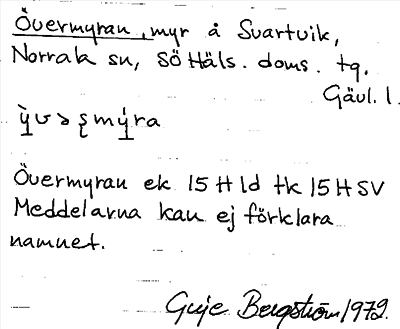 Övermyran, myr å Svartvik,
Norrala sn, SÖ Häls. doms. tg.
Gävl. l.
Övermyran ek 15 H ld tk 15 H SV
Meddelarna kan ej förklara
namnet.
Guje Bergström 1972.